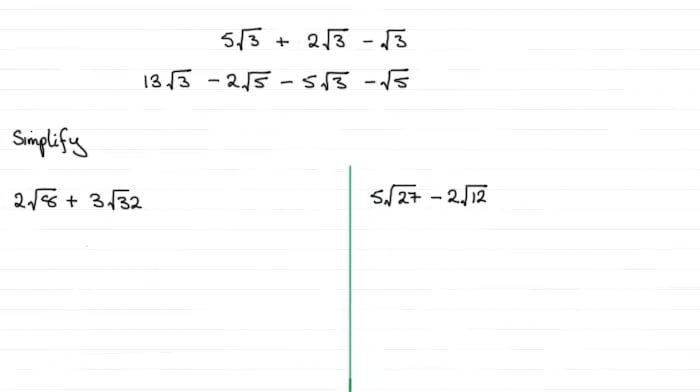 5√3 + 2√3 - √3
13√3 - 2√5 - 5√3 - √5
Simplify
2√8 + 3√32
5√27 - 2√12